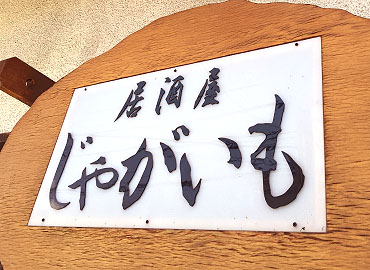 居酒屋
じゃがいも